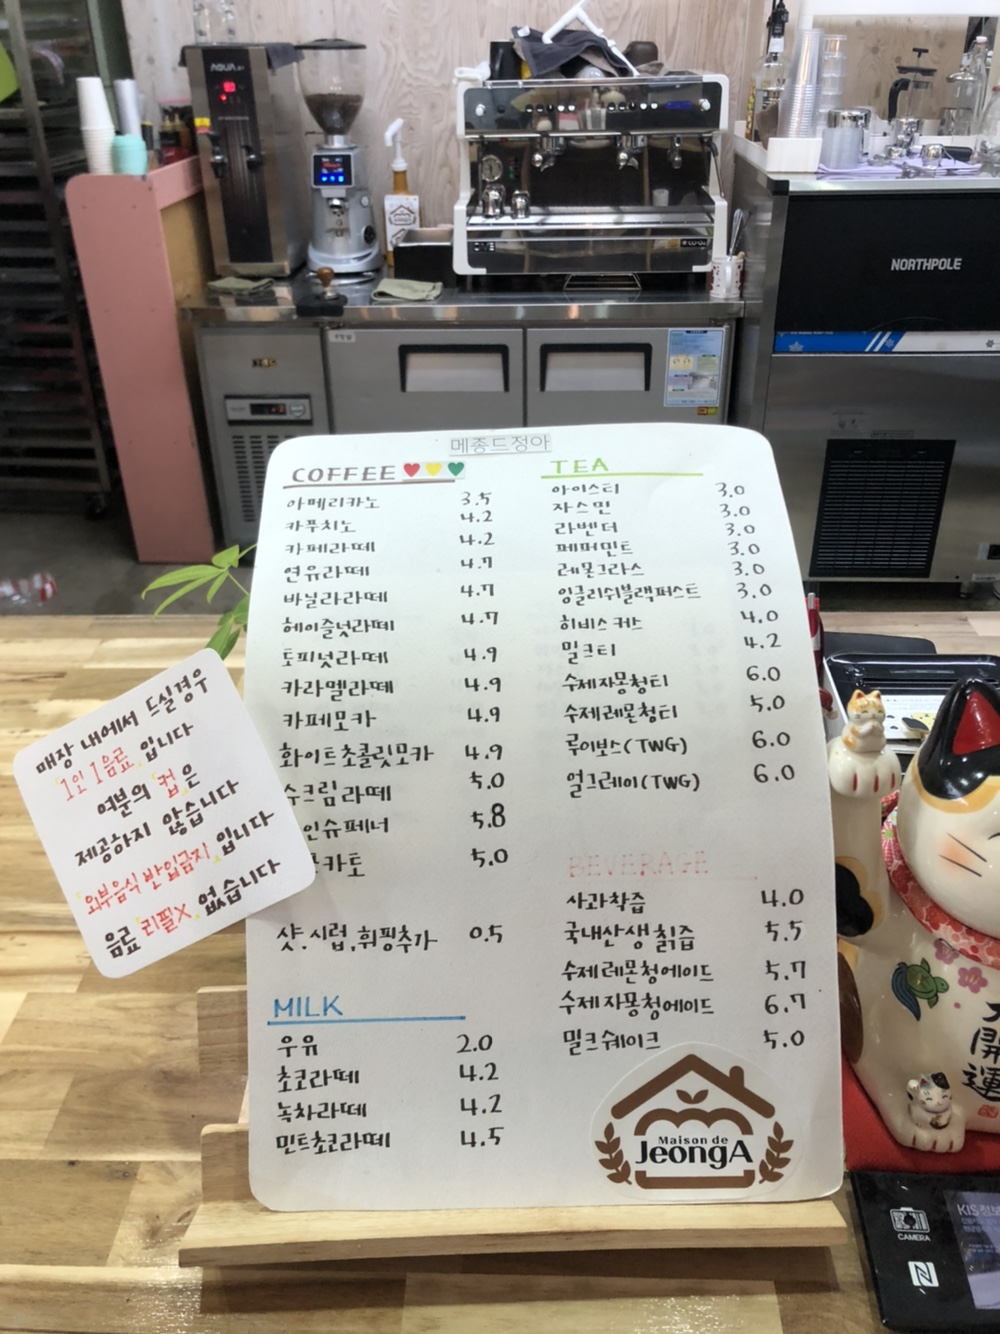 AQUA
NORTHPOLE
메종드정아
COFFEE
아메리카노 3.5
카푸치노 4.2
카페라떼 4.2
연유라떼 4.7
바닐라라떼 4.7
헤이즐넛라떼 4.7
토피넛라떼 4.9
카라멜라떼 4.9
카페모카 4.9
화이트초콜릿모카 4.9
수크림라떼 5.0
인슈페너 5.8
카토 5.0
샷.시럽.휘핑추가 0.5
MILK
우유 2.0
초코라떼 4.2
녹차라떼 4.2
민트초코라떼 4.5
TEA
아이스티 3.0
자스민 3.0
라벤더 3.0
페퍼민트 3.0
레몬그라스 3.0
잉글리쉬블랙퍼스트 3.0
히비스커스 4.0
밀크티 4.2
수제자몽청티 6.0
수제레몬청티 5.0
루이보스(TWG) 6.0
얼그레이(TWG) 6.0
BEVERAGE
사과착즙 4.0
국내산생칡즙 5.5
수제레몬청에이드 5.7
수제자몽청에이드 6.7
밀크쉐이크 5.0
Maison de
JeongA
매장 내에서 드실경우
"1인 1음료" 입니다
여분의 컵은
제공하지 않습니다
"외부음식반입금지" 입니다
음료 리필X 없습니다
開
運
KIS정보
CAMERA